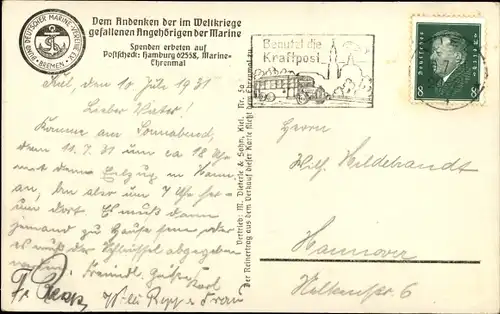 BUND DEUTSCHER MARINE-VEREINE E.V.
BREMEN
Dem Andenken der im Weltkriege
gefallenen Angehörigen der Marine
Spenden erbeten auf
Postscheck: Hamburg 02558, Marine-
Ehrenmal
Benutzt die
Kraftpost
Deutsches Reich
8 8
Kiel, den 10 Juli 1931
Lieber Vater!
Komme am Sonnabend,
dem 11.7.31 um ca 18 Uhr
mit dem Eilzug in Hann.
an, bin aber um 7 Uhr
und dort. Es muß dann
jemand zu Hause sein oder
es muß der Schlüssel abgegeben
werden. Freundl. Grüßen
Karl
Willi Repp u Frau
Vertrieb: M. Dieterle & Sohn, Kiel. Nr. 50
Der Reinertrag aus dem Verkauf dieser Karte fließt dem Ehrenmal zu
Herrn
Wilh. Hildebrandt
Hannover
6